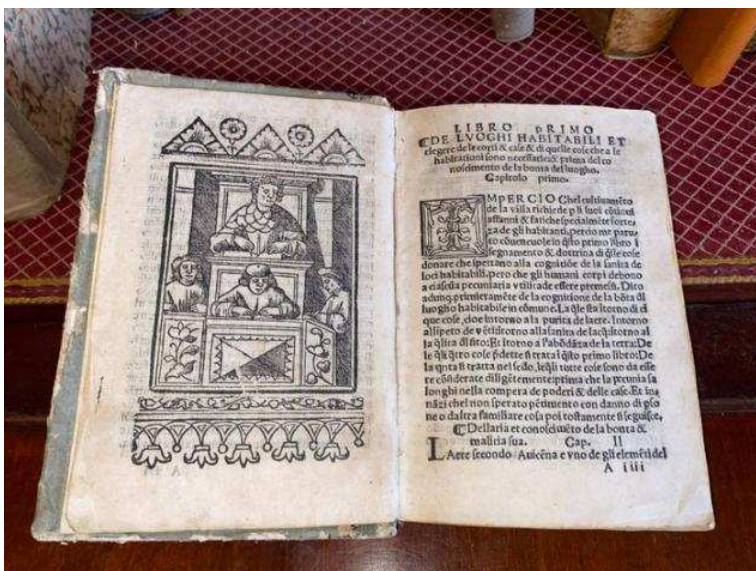 LIBRO PRIMO
DE LVOGHI HABITABILI ET
elegere de le corti & case & di quelle cose che a le
habitationi sono necessarie: & prima del co
noscimento de la bonta del luogho.
Capitolo primo.
IMPERCIO Chel cultiuamẽto
de la villa richiede p li suoi cõtinui
affanni & fatiche specialmẽte forte
za de gli habitanti, percio me paru
to cõueneuole in q̃sto primo libro i
segnamento & dottrina di q̃lle cose
donare che spettano alla cognitiõe de la sanita de
loci habitabili, pero che gli humani corpi debono
a ciascũa pecuniaria vtilita de essere premessi. Dito
adunq, primieramẽte de la cognitione de la bõta dl
luogho habitabile in cõmune. La q̃le sta itorno di
que cose, cioe intorno a la purita de laere. Intorno
al ipeto de vẽti: itorno alla sanita de lacq: itorno al
la q̃lita dl sito: Et itorno a l'abõdãza de la terra: De
le q̃li q̃tro cose p̃dette si tratta i q̃sto primo libro: De
la q̃nta si tratta nel scdo, leq̃li tutte cose sono da esse
re cõsiderate diligẽtemente: prima che la pecunia sa
longhi nella compera de poderi & delle case. Et in
nãzi chel non sperato pẽtimento con danno di pso
ne o daltra familiare cosa poi tostamente si seguisce.
Dellaria et conosciuẽto de la bonta &
malitia sua. Cap. II
LAere secondo Auicẽna e vno de gli elemẽti del
A iiii
A